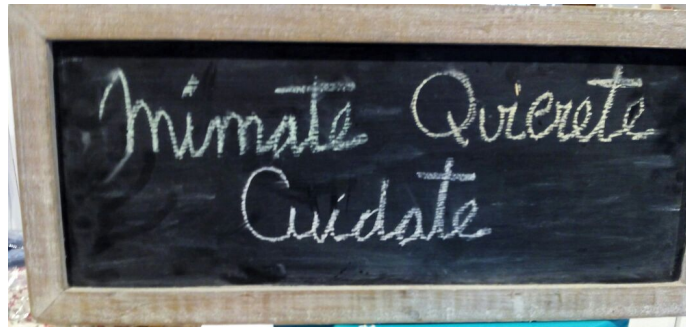 Mimate Quierete
Cuidate